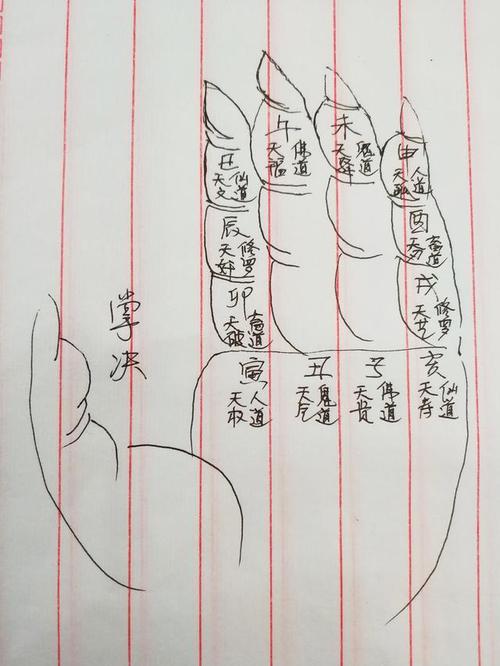 午
天福
佛道
未
天驿
鬼道
巳
天文
仙道
申
天孤
人道
辰
天奸
修罗
酉
天
畜道
卯
天破
畜道
戌
天艺
修罗
掌决
寅
天权
人道
丑
天厄
鬼道
子
天贵
佛道
亥
天寿
仙道